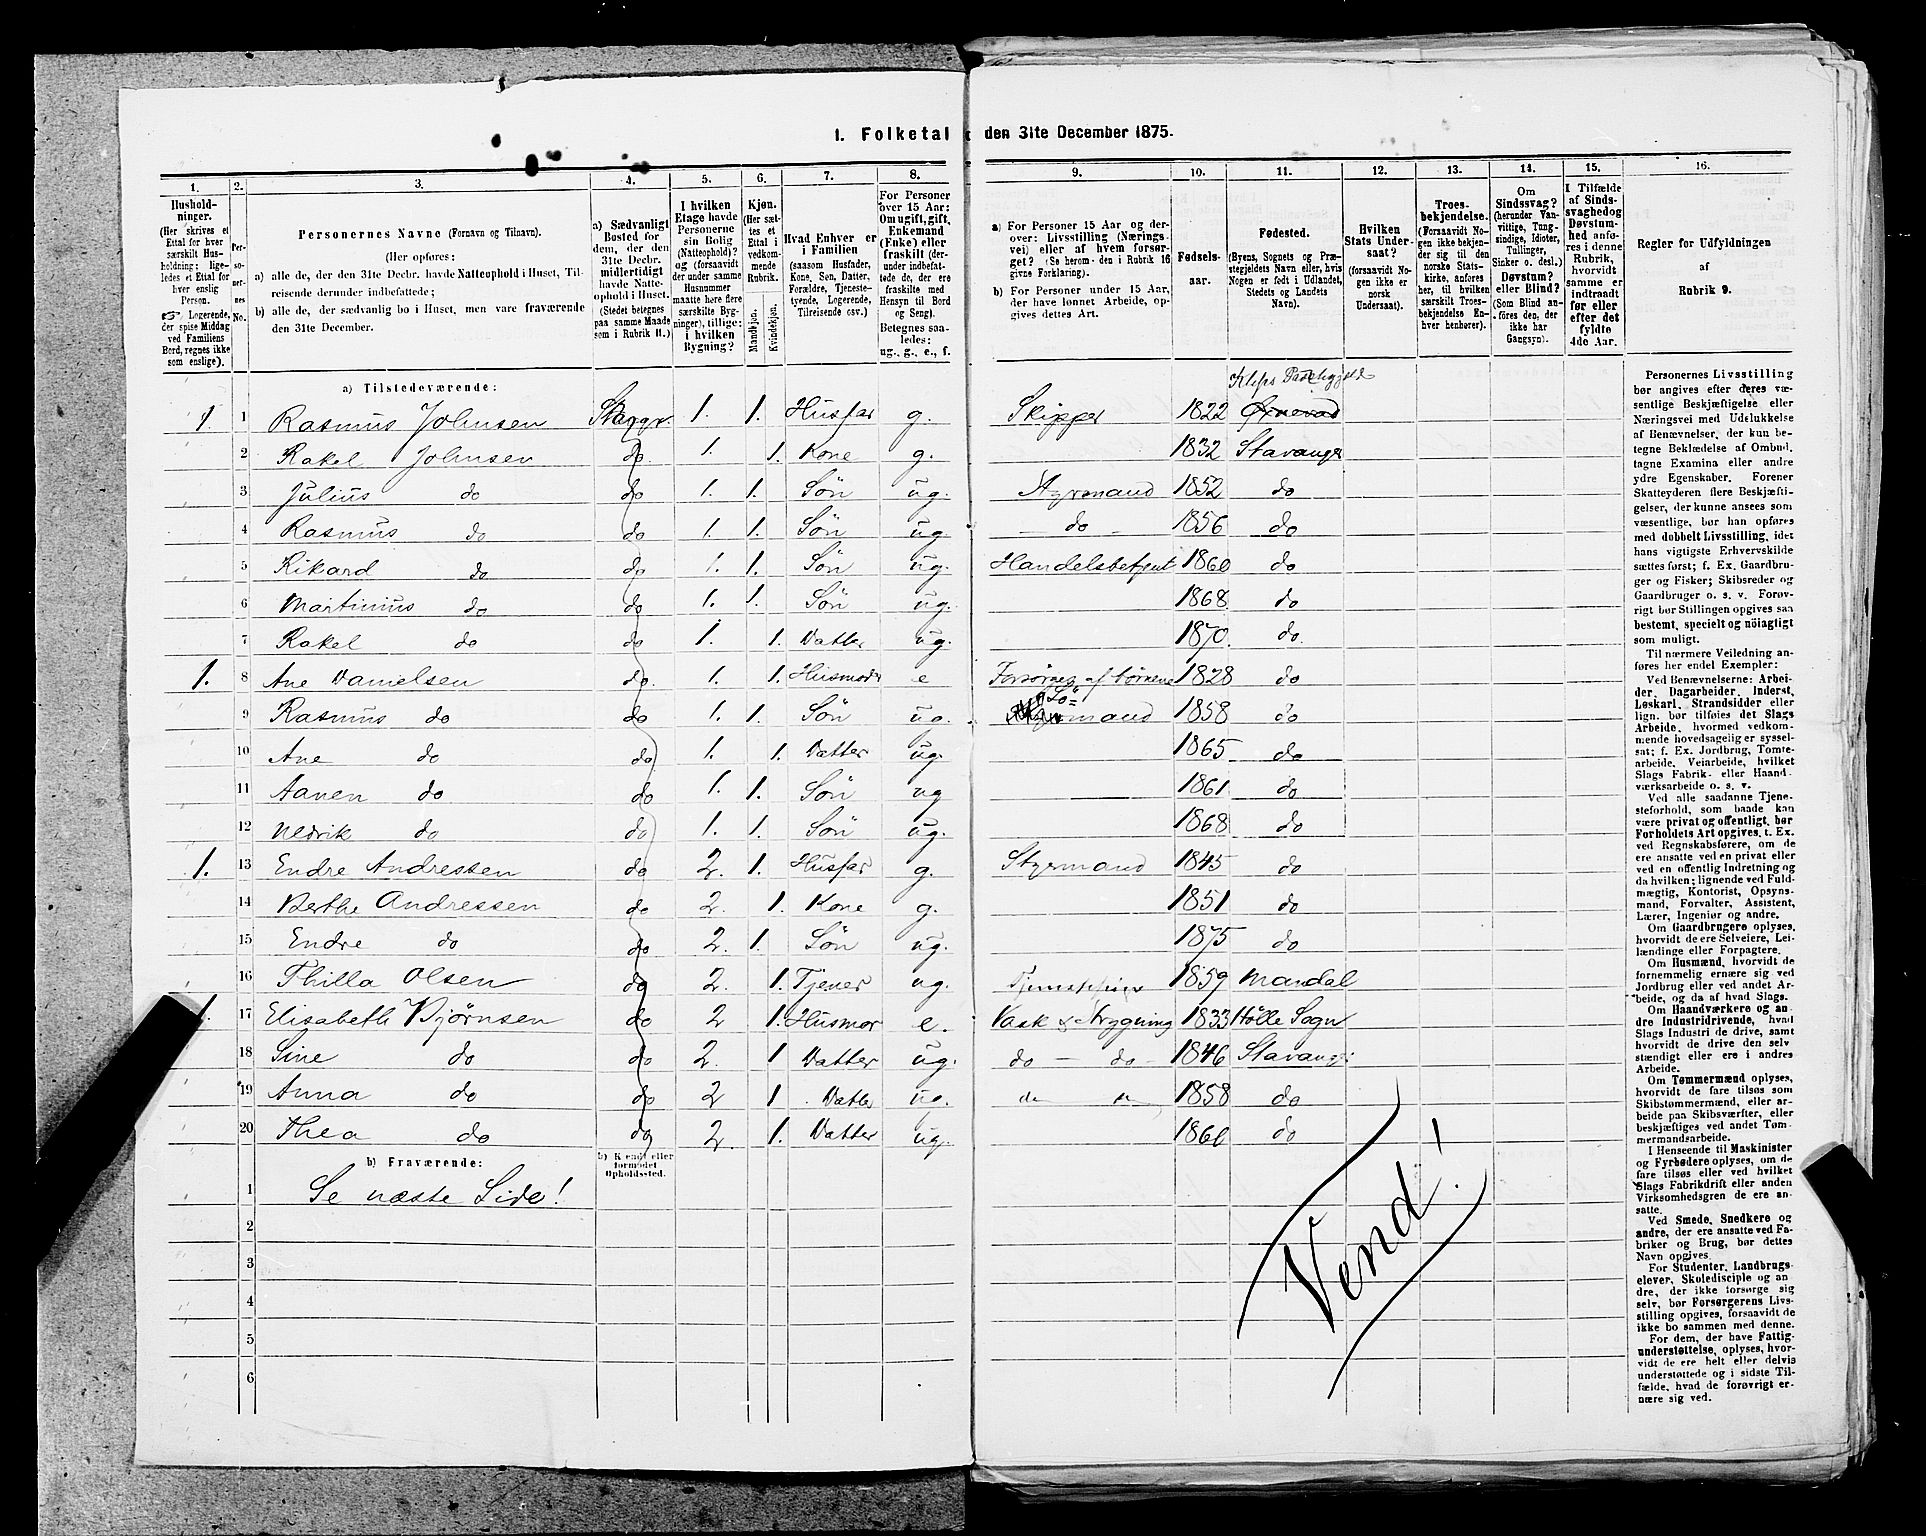 1. Folketal den 31te December 1875.
1. 2. 3. 4. 5. 6. 7. 8. 9. 10. 11. 12. 13. 14. 15. 16.
Hushold-
ninger.
(Her skrives et
Ettal for hver
særskilt Hus-
holdning; lige-
ledes et Ettal for
hver enslig
Person.
☞ Logerende,
der spise Middag
ved Familiens
Bord, regnes ikke
som enslige).
Per-
soner-
nes
No.
Personernes Navne (Fornavn og Tilnavn).
(Her opføres:
a) alle de, der den 31te Decbr. havde Natteophold i Huset, Til-
reisende derunder indbefattede;
b) alle de, der sædvanlig bo i Huset, men vare fraværende
den 31te December.
a) Sædvanligt
Bosted for
dem, der den
31te Decbr.
midlertidigt
havde Natte-
ophold i Huset.
(Stedet betegnes
paa samme Maade
som i Rubrik 11.)
I hvilken
Etage havde
Personerne
sin Bolig
(Natteophold)?
og (forsaavidt
der under samme
Husnummer
maatte høre flere
særskilte Byg-
ninger), tillige:
i hvilken
Bygning?
Kjøn.
(Her sæt-
tes et
Ettal i
vedkom-
mende
Rubrik.
Mandkjøn.
Kvindekjøn.
Hvad Enhver er
i Familien
(saasom Husfader,
Kone, Søn, Datter,
Forældre, Tjeneste-
tyende, Logerende,
Tilreisende osv.)
For Personer
over 15 Aar:
Om ugift, gift,
Enkemand
(Enke) eller
fraskilt (der-
under indbefat-
tede, der ere
fraskilte med
Hensyn til Bord
og Seng).
Betegnes saa-
ledes:
ug., g., e., f.
a) For Personer 15 Aar og der-
over: Livsstilling (Nærings-
vei) eller af hvem forsør-
get? (Se herom den i Rubrik 16
givne Forklaring).
b) For Personer under 15 Aar,
der have lønnet Arbeide, op-
gives dettes Art.
Fødsels-
aar.
Fødested.
(Byens, Sognets og Præ-
stegjeldets Navn eller, hvis
Nogen er født i Udlandet,
Stedets og Landets
Navn).
Hvilken
Stats Under-
saat?
(forsaavidt No-
gen ikke er
norsk
Undersaat).
Troes-
bekjendelse.
(Forsaavidt No-
gen ikke bekjen-
der sig til den
norske Stats-
kirke, anføres
her, til hvilken
særskilt Troes-
bekjendelse En-
hver henhører).
Om
Sindssvag?
(herunder Van-
vittige, Tung-
sindige, Idioter,
Tullinger,
Sinker o. desl.)
Døvstum?
eller Blind?
(Som Blind an-
føres den, der
ikke har
Gangsyn).
I Tilfælde
af Sinds-
svaghed og
Døvstum-
hed anfø-
res i denne
Rubrik,
hvorvidt
samme er
indtraadt
før eller
efter det
fyldte
4de Aar.
Regler for Udfyldningen
af
Rubrik 9.
a) Tilstedeværende:
Kleps Præstegjeld
1. 1 Rasmus Johnsen Stavgr. 1. 1. Husfar g. Skipper 1822
2 Rakel Johnsen do 1. 1. Kone g. 1832 Stavange
3 Julius do do 1. 1. Søn ug. Styrmand 1852 do
4 Rasmus do do 1. 1. Søn ug. do - 1856 do
5 Rikard do do 1. 1. Søn ug. Handelsbetjent 1860 do
6 Martinius do do 1. 1. Søn ug. 1868 do
7 Rakel do do 1. 1. Datter ug. 1870. do.
1. 8 Ane Danielsen do. 1. 1. Husmoder e Forsørges af Børnene 1828 do
9 Rasmus do do 1. 1. Søn ug. Sö= mand 1858 do
10 Ane do do 1. 1. Datter ug. 1865 do
11 Aanen do do 1. 1. Søn ug 1861 do
12 do do 1. 1. Søn ug. 1868 do
1. 13 Endre Andressen do 2. 1. Husfar g. Styrmand 1845 do
14 Berthe Andressen do 2. 1. Kone g. 1851 do
15 Endre do do 2. 1. Søn ug. 1875 do
16 Thilla Olsen do 2. 1 Tjener ug. Tjenestepige 1859 Mandal
1. 17 Elisabeth Bjørnsen do 2 1. Husmor e. Vask & Strygning 1833 Hölle Sogn
18 Sine do do 2. 1 Datter ug. do - do - 1846 Stavange
19 Anna do do 2 1 Datter ug. do do 1858 do
20 Thea do do 2. 1. Datter ug. 1860 do
b) Fraværende:
b) Kjendt eller
formodet
Opholdssted.
1 Se næste Side!
2
3
4
5
6
Vend!
Personernes Livsstilling
bør angives efter deres væ-
sentlige Beskjæftigelse eller
Næringsvei med Udelukkelse
af Benævnelser, der kun be-
tegne Beklædelse af Ombud,
tagne Examina eller andre
ydre Egenskaber. Forener
Skatteyderen flere Beskjæfti-
gelser, der kunne ansees som
væsentlige, bør han opføres
med dobbelt Livsstilling, idet
hans vigtigste Erhvervskilde
sættes først; f. Ex. Gaardbru-
ger og Fisker; Skibsreder og
Gaardbruger o. s. v. Forøv-
rigt bør Stillingen opgives saa
bestemt, specielt og nøiagtigt
som muligt.
Til nærmere Veiledning an-
føres her endel Exempler:
Ved Benævnelserne: Arbei-
der, Dagarbeider, Inderst,
Løskarl, Strandsidder eller
lign. bør tilføies det Slags
Arbeide, hvormed vedkom-
mende hovedsagelig er syssel-
sat; f. Ex. Jordbrug, Tomte-
arbeide, Veiarbeide, hvilket
Slags Fabrik- eller Haand-
værksarbeide o. s. v.
Ved alle saadanne Tjene-
steforhold, som baade kan
være privat og offentligt, bør
Forholdets Art opgives, t. Ex.
ved Regnskabsførere, om de
ere ansatte ved en privat eller
ved en offentlig Indretning og
da hvilken; lignende ved Fuld-
mægtig, Kontorist, Opsyns-
mand, Forvalter, Assistent,
Lærer, Ingeniør og andre.
Om Gaardbrugere oplyses,
hvorvidt de ere Selveiere, Lei-
lændinge eller Forpagtere.
Om Husmænd, hvorvidt de
fornemmelig ernære sig ved
Jordbrug eller ved andet Ar-
beide, og da af hvad Slags.
Om Haandværkere og an-
dre Industridrivende, hvad
Slags Industri de drive, samt
hvorvidt de drive den selv-
stændigt eller ere i andres
Arbeide.
Om Tømmermænd oplyses,
hvorvidt de fare tilsøs som
Skibstømmermænd, eller ar-
beide paa Skibsværfter, eller
beskjæftiges ved andet Tøm-
mermandsarbeide.
I Henseende til Maskinister
og Fyrbødere oplyses, om de
fare tilsøs eller ved hvilket
Slags Fabrikdrift eller anden
Virksomhedsgren de ere an-
satte.
Ved Smede, Snedkere og
andre, der ere ansatte ved Fa-
briker og Brug, bør dettes
Navn opgives.
For Studenter, Landbrugs-
elever, Skoledisciple og an-
dre, der ikke forsørge sig
selv, bør Forsørgerens Livs-
stilling opgives, forsaavidt de
ikke bo sammen med denne.
For dem, der have Fattig-
understøttelse, oplyses, hvor-
vidt de ere helt eller delvis
understøttede og i sidste Til-
fælde, hvad de forøvrigt er-
nære sig ved.